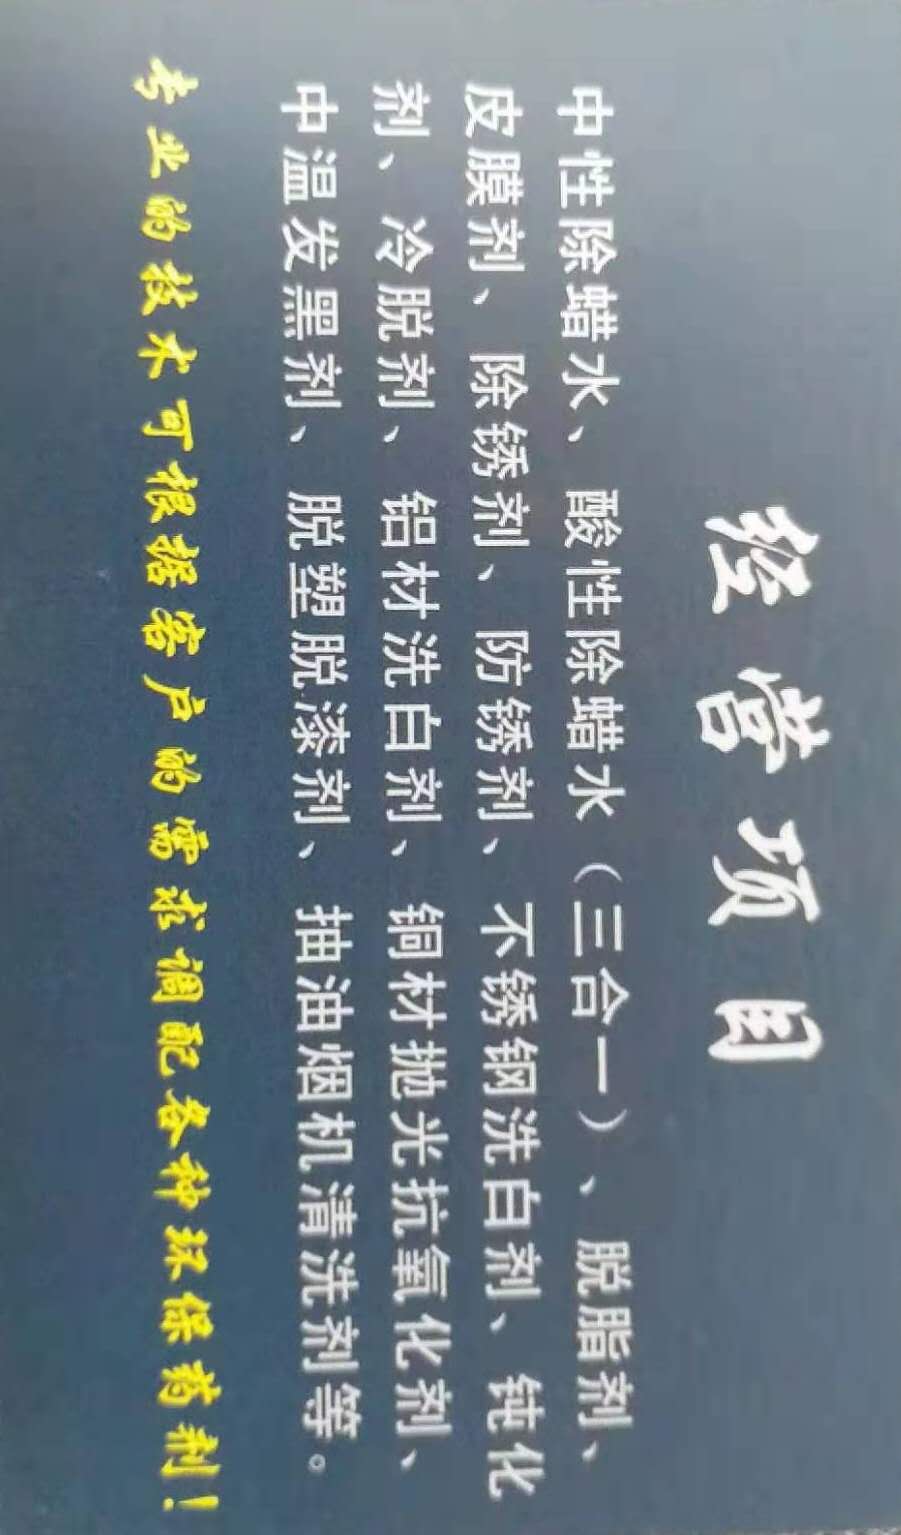 经营项目
中性除蜡水、酸性除蜡水（三合一）、脱脂剂、
皮膜剂、除锈剂、防锈剂、不锈钢洗白剂、钝化
剂、冷脱剂、铝材洗白剂、铜材抛光抗氧化剂、
中温发黑剂、脱塑脱漆剂、抽油烟机清洗剂等。
专业的技术可根据客户的需求调配各种环保药剂！